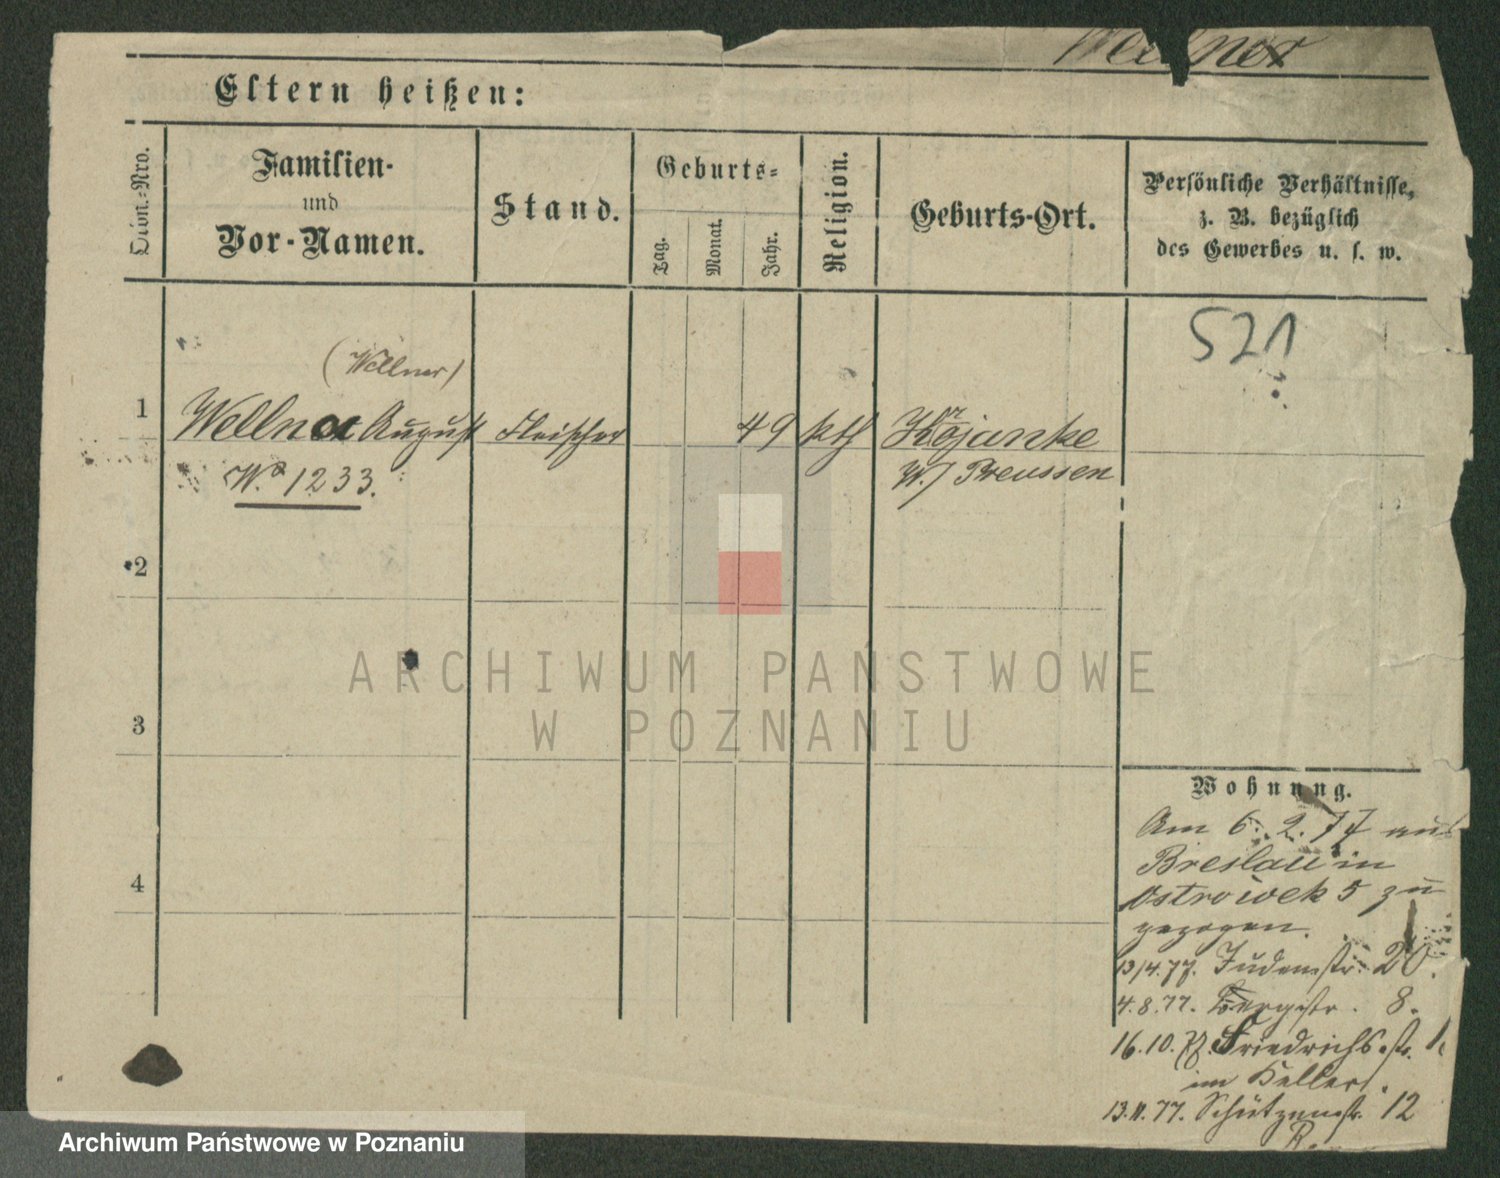 Wellner
Eltern heißen:
Ordn.-Nro.
Familien-
und
Vor-Namen.
Stand.
Geburts-
Tag.
Monat.
Jahr.
Religion.
Geburts-Ort.
Persönliche Verhältnisse,
z. B. bezüglich
des Gewerbes u. s. w.
521
(Wellner)
1 August Fleischer 49 kth Krojanke
No 1233.
W./Preussen
2
3
4
Wohnung.
Am 6. 2. 77 aus
Breslau in
Ostrowek 5 zu
gezogen.
13/4.77. Judenstr. 20.
4.8.77. Bergstr. 8.
16.10.77. Friedrichsstr. 1.
im Keller.
13.11.77. Schützenstr. 12
R.
ARCHIWUM PAŃSTWOWE
W POZNANIU
Archiwum Państwowe w Poznaniu